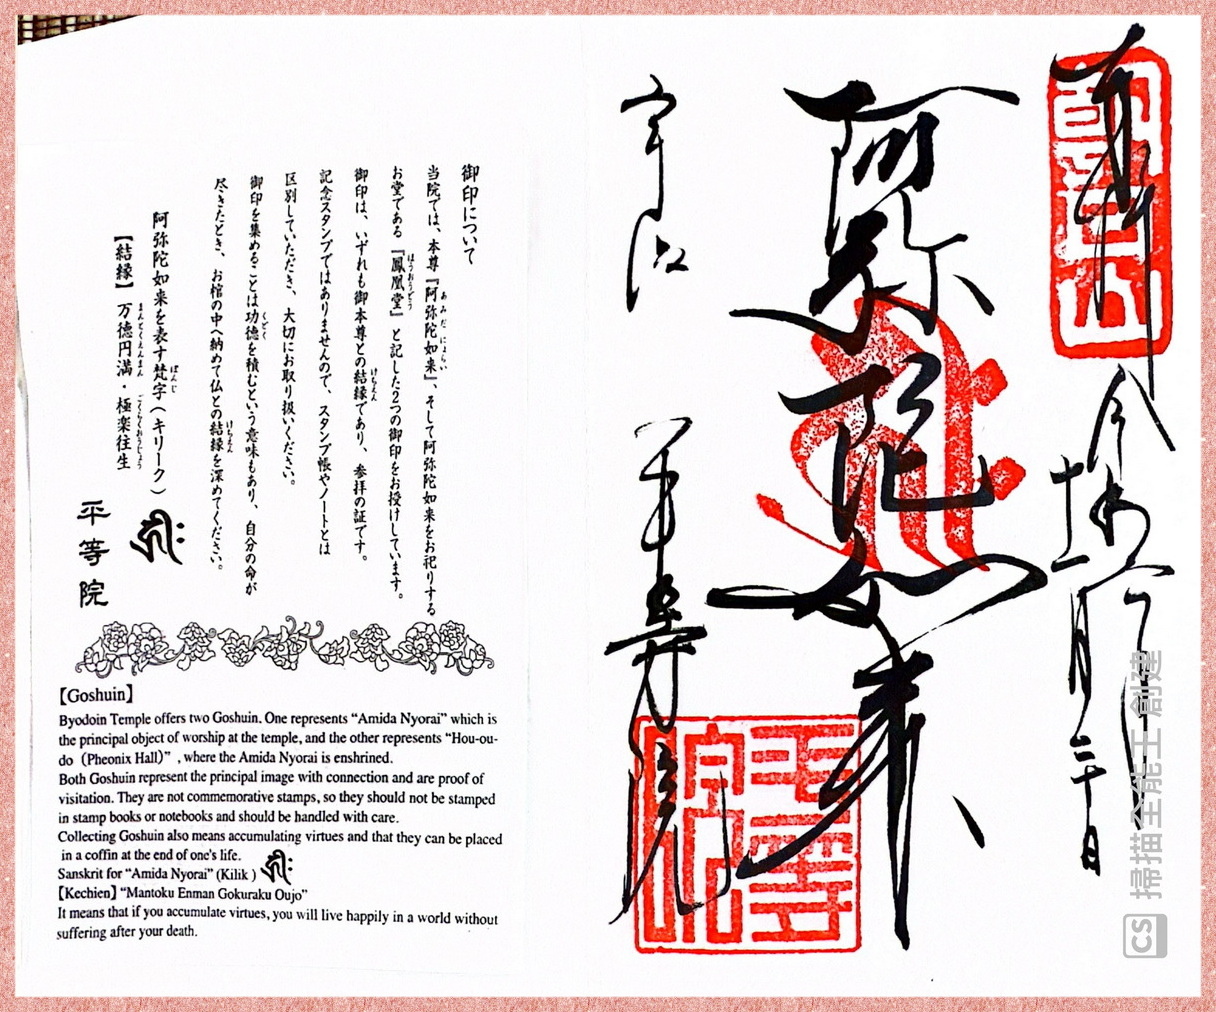 奉拝
令和六年
十一月二十日
阿弥陀如来
宇治
平等院
御印について
当院では、本尊『阿弥陀如来』、そして阿弥陀如来をお祀りする
お堂である『鳳凰堂』と記した2つの御印をお授けしています。
御印は、いずれも御本尊との結縁であり、参拝の証です。
記念スタンプではありませんので、スタンプ帳やノートとは
区別していただき、大切にお取り扱いください。
御印を集めることは功徳を積むという意味もあり、自分の命が
尽きたとき、お棺の中へ納めて仏との結縁を深めてください。
阿弥陀如来を表す梵字（キリーク）
【結縁】万徳円満・極楽往生
平等院
【Goshuin】
Byodoin Temple offers two Goshuin. One represents “Amida Nyorai” which is
the principal object of worship at the temple, and the other represents “Hou-ou-
do（Pheonix Hall)”, where the Amida Nyorai is enshrined.
Both Goshuin represent the principal image with connection and are proof of
visitation. They are not commemorative stamps, so they should not be stamped
in stamp books or notebooks and should be handled with care.
Collecting Goshuin also means accumulating virtues and that they can be placed
in a coffin at the end of one's life.
Sanskrit for “Amida Nyorai” (Kilik )
【Kechien】“Mantoku Enman Gokuraku Oujo”
It means that if you accumulate virtues, you will live happily in a world without
suffering after your death.
CS 掃描全能王 創建